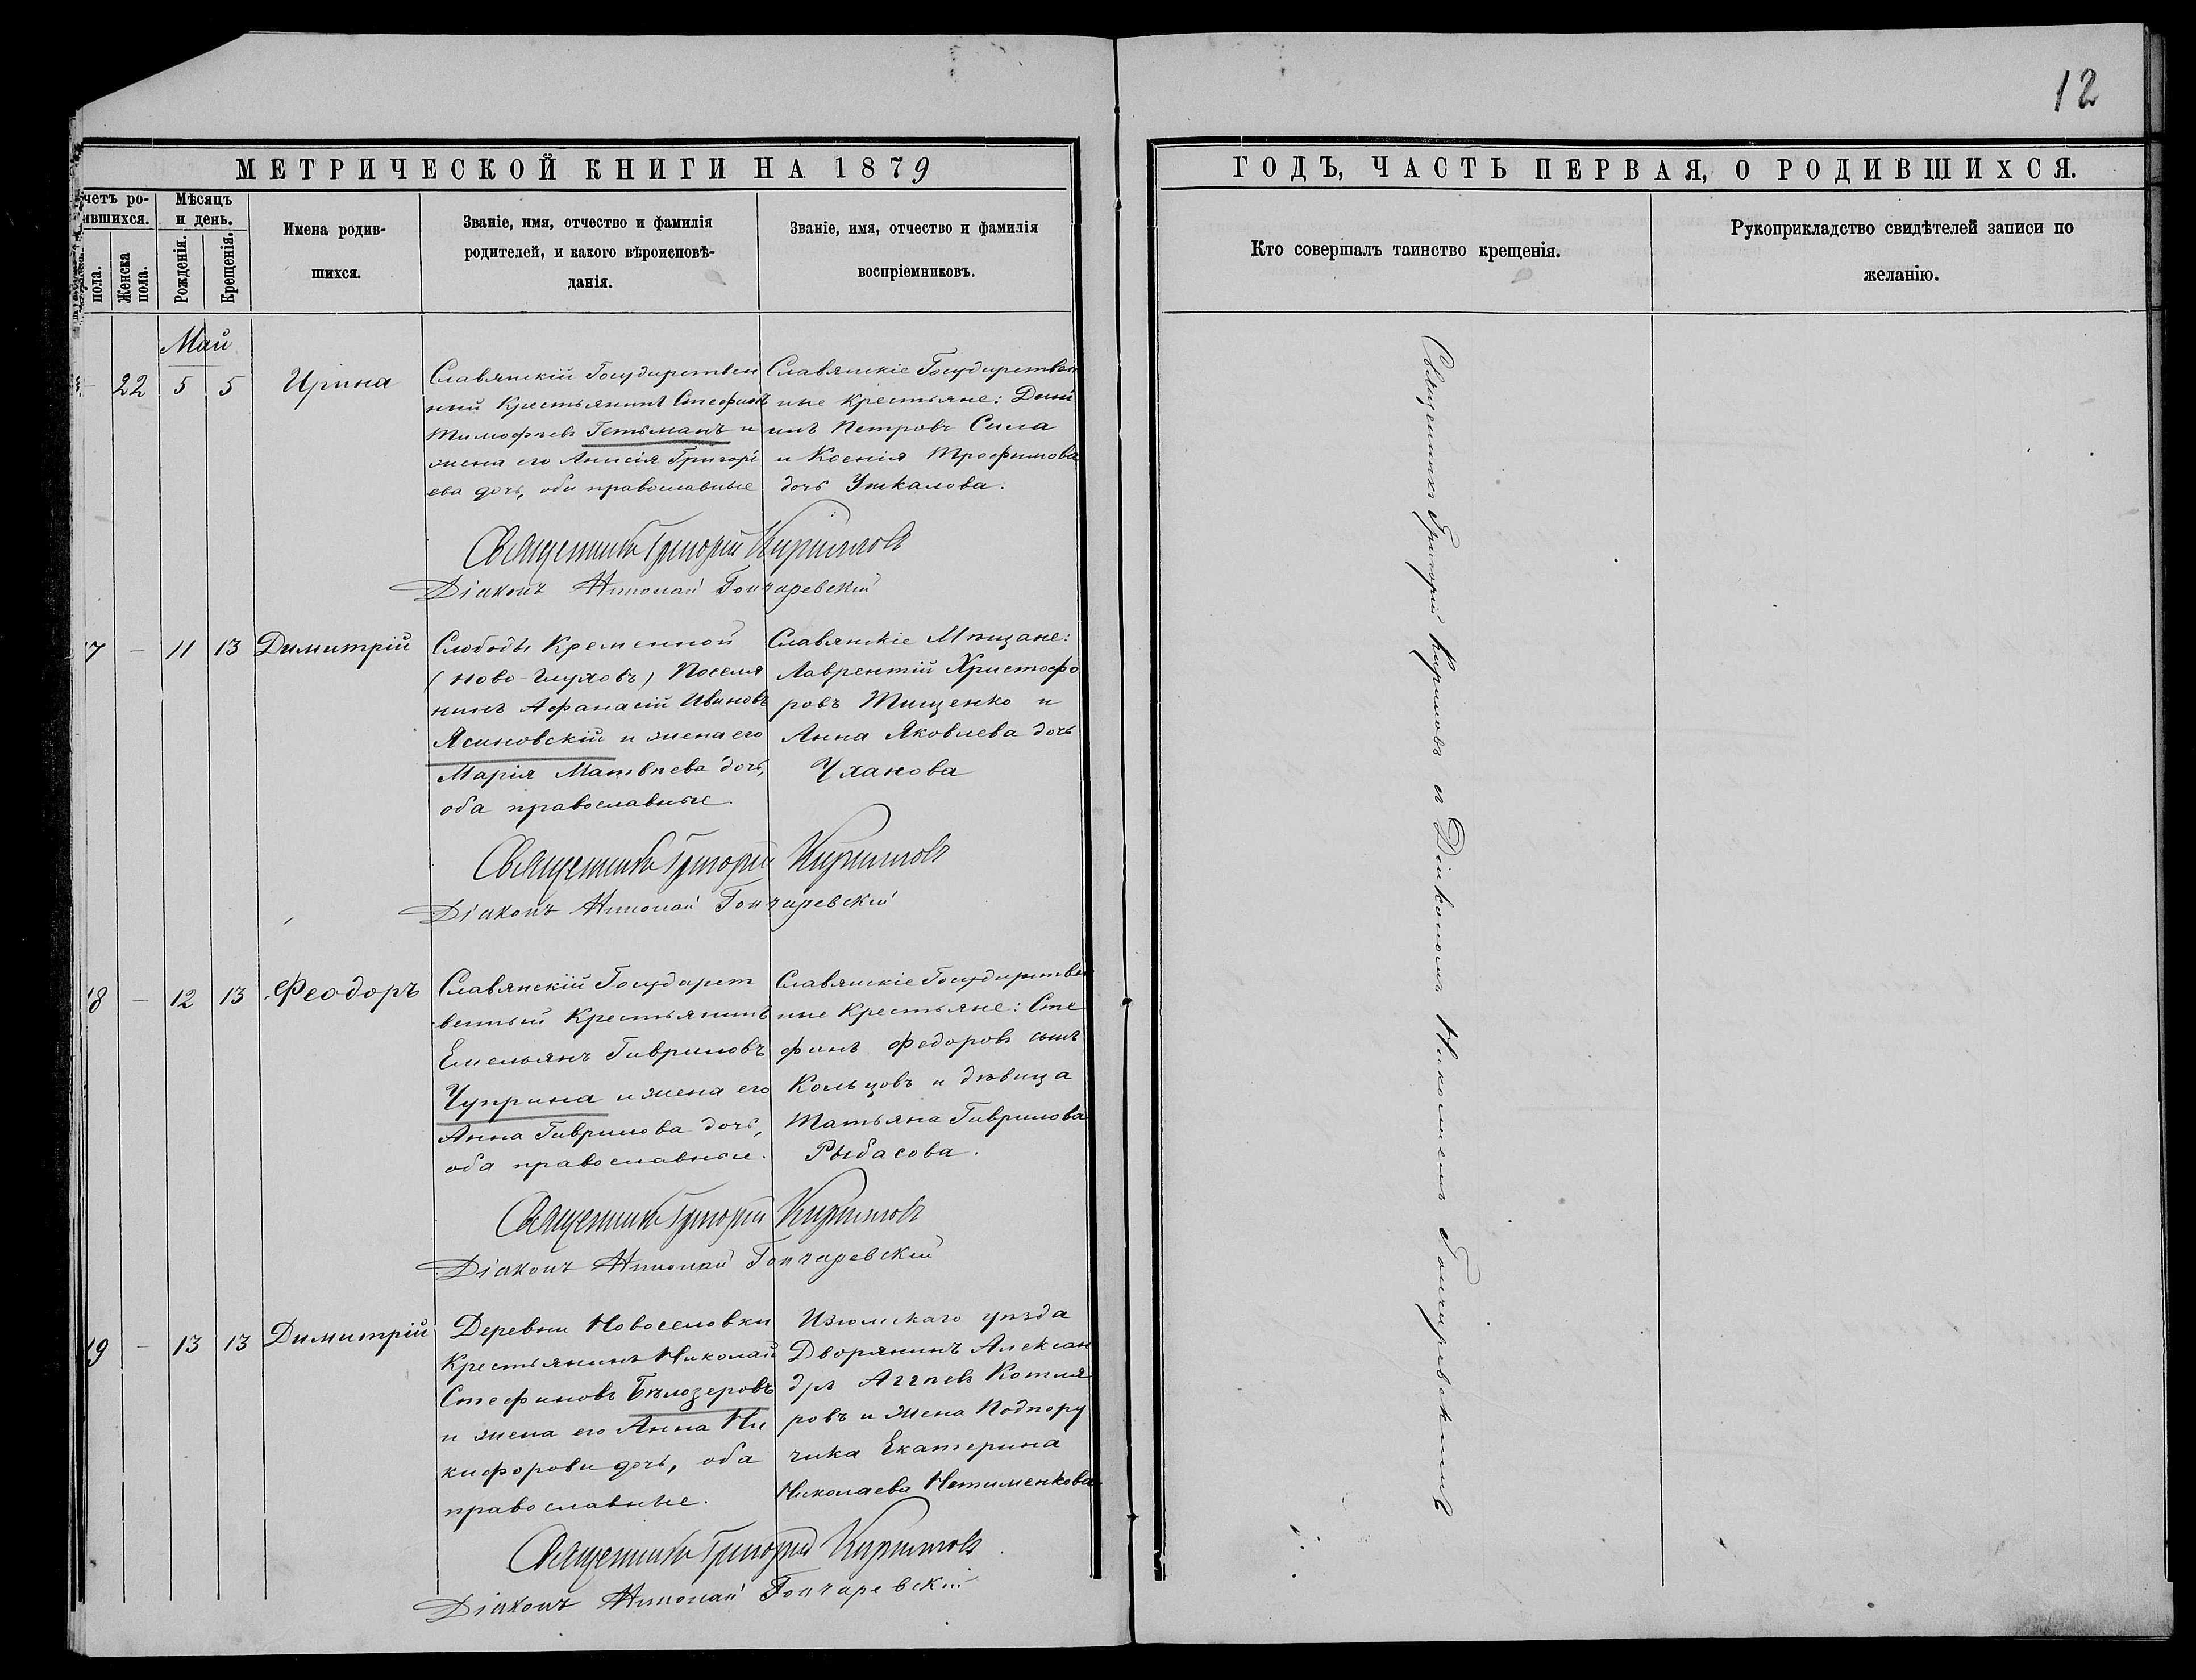 12
МЕТРИЧЕСКОЙ КНИГИ НА 1879
четъ ро-
ившихся.
пола.
Женска
пола.
Мѣсяцъ
и день.
Рожденія.
Крещенія.
Имена родив-
шихся.
Званіе, имя, отчество и фамилія
родителей, и какого вѣроисповѣ-
данія.
Званіе, имя, отчество и фамилія
воспріемниковъ.
Май
22 5 5 Ирина
Славянскій Государствен
ный Крестьянинъ Стефанъ
Тимофѣевъ Гетьманъ и
жена его Анисія Григорі
ева дочь, оба православные
Славянскіе Государствен
ные Крестьяне:
Петровъ Сила
и Ксенія Трофимова
дочь Ушкалова.
Священникъ Григорій Кирилловъ
Діаконъ Николай Гончаревскій
17 — 11 13 Димитрій
Слободы Кременной
(Ново-Глуховъ) Поселя
нинъ Афанасій Ивановъ
Ясиновскій и жена его
Марія Матвѣева дочь,
оба православные.
Славянскіе Мѣщане:
Лаврентій Христофо
ровъ Тищенко и
Анна Яковлева дочь
Уханова
Священникъ Григорій Кирилловъ
Діаконъ Николай Гончаревскій
18 — 12 13 Феодоръ
Славянскій Государст
венный Крестьянинъ
Емельянъ Гавриловъ
Чуприна и жена его
Анна Гаврилова дочь,
оба православные.
Славянскіе Государствен
ные Крестьяне: Сте
фанъ Федоровъ сынъ
Кольцовъ и дѣвица
Татьяна Гаврилова
Рыбасова.
Священникъ Григорій Кирилловъ
Діаконъ Николай Гончаревскій
19 — 13 13 Димитрій
Деревни Новоселовки
Крестьянинъ Николай
Стефановъ Бѣлозеровъ
и жена его Анна Ни
кифорова дочь, оба
православные.
Изюмскаго уѣзда
Дворянинъ Алексан
дръ Аггѣевъ Котля
ровъ и жена Подпору
чика Екатерина
Николаева
Священникъ Григорій Кирилловъ
Діаконъ Николай Гончаревскій
ГОДЪ, ЧАСТЬ ПЕРВАЯ, О РОДИВШИХСЯ.
Кто совершалъ таинство крещенія.
Рукоприкладство свидѣтелей записи по
желанію.
Священникъ Григорій Кирилловъ съ Діакономъ Николаемъ Гончаревскимъ